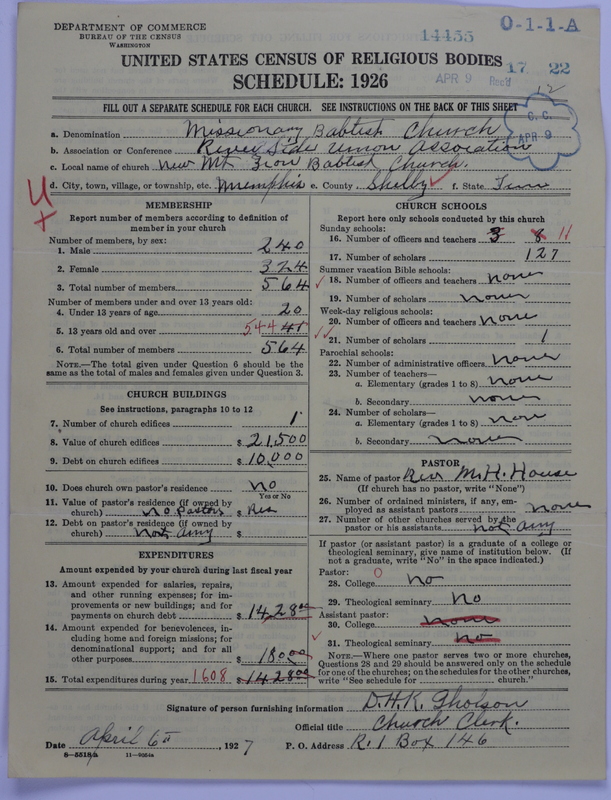 DEPARTMENT OF COMMERCE
BUREAU OF THE CENSUS
WASHINGTON
14455
O-1-1-A
UNITED STATES CENSUS OF RELIGIOUS BODIES
SCHEDULE: 1926
APR 9 Rec'd
17 22
12
FILL OUT A SEPARATE SCHEDULE FOR EACH CHURCH. SEE INSTRUCTIONS ON THE BACK OF THIS SHEET
C. C.
APR 9
a. Denomination Missionary Babtist Church
b. Association or Conference River Side Union Association
c. Local name of church New Mt Zion Babtist Church.
d. City, town, village, or township, etc. Memphis e. County Shelby f. State Tenn
MEMBERSHIP
Report number of members according to definition of member in your church
Number of members, by sex:
1. Male 240
2. Female 324
3. Total number of members 564
Number of members under and over 13 years old:
4. Under 13 years of age 20
5. 13 years old and over 544
6. Total number of members 564
NOTE.—The total given under Question 6 should be the same as the total of males and females given under Question 3.
CHURCH BUILDINGS
See instructions, paragraphs 10 to 12
7. Number of church edifices 1
8. Value of church edifices $ 21,500
9. Debt on church edifices $ 10,000
10. Does church own pastor's residence? No
Yes or No
11. Value of pastor's residence (if owned by church) no Pastors $ Res
12. Debt on pastor's residence (if owned by church) not any $
EXPENDITURES
Amount expended by your church during last fiscal year
13. Amount expended for salaries, repairs, and other running expenses; for improvements or new buildings; and for payments on church debt $ 1428 00
14. Amount expended for benevolences, including home and foreign missions; for denominational support; and for all other purposes $ 180 00
15. Total expenditures during year 1608 $ 1428 00
CHURCH SCHOOLS
Report here only schools conducted by this church
Sunday schools:
16. Number of officers and teachers 3 8 11
17. Number of scholars 127
Summer vacation Bible schools:
18. Number of officers and teachers none
19. Number of scholars none
Week-day religious schools:
20. Number of officers and teachers none
21. Number of scholars 1
Parochial schools:
22. Number of administrative officers none
23. Number of teachers—
a. Elementary (grades 1 to 8) none
b. Secondary none
24. Number of scholars—
a. Elementary (grades 1 to 8) non
b. Secondary none
PASTOR
25. Name of pastor Rev M. H. House
(If church has no pastor, write "None")
26. Number of ordained ministers, if any, employed as assistant pastors none
27. Number of other churches served by the pastor or his assistants not any
If pastor (or assistant pastor) is a graduate of a college or theological seminary, give name of institution below. (If not a graduate, write "No" in the space indicated.)
Pastor:
28. College No
29. Theological seminary No
Assistant pastor:
30. College none
31. Theological seminary no
NOTE.—Where one pastor serves two or more churches, Questions 28 and 29 should be answered only on the schedule for one of the churches; on the schedules for the other churches, write "See schedule for church."
Signature of person furnishing information D. H. K. Gholson
Official title Church Clerk.
Date April 6th, 1927 P. O. Address R. 1 Box 146
8—5518a 11—9054a